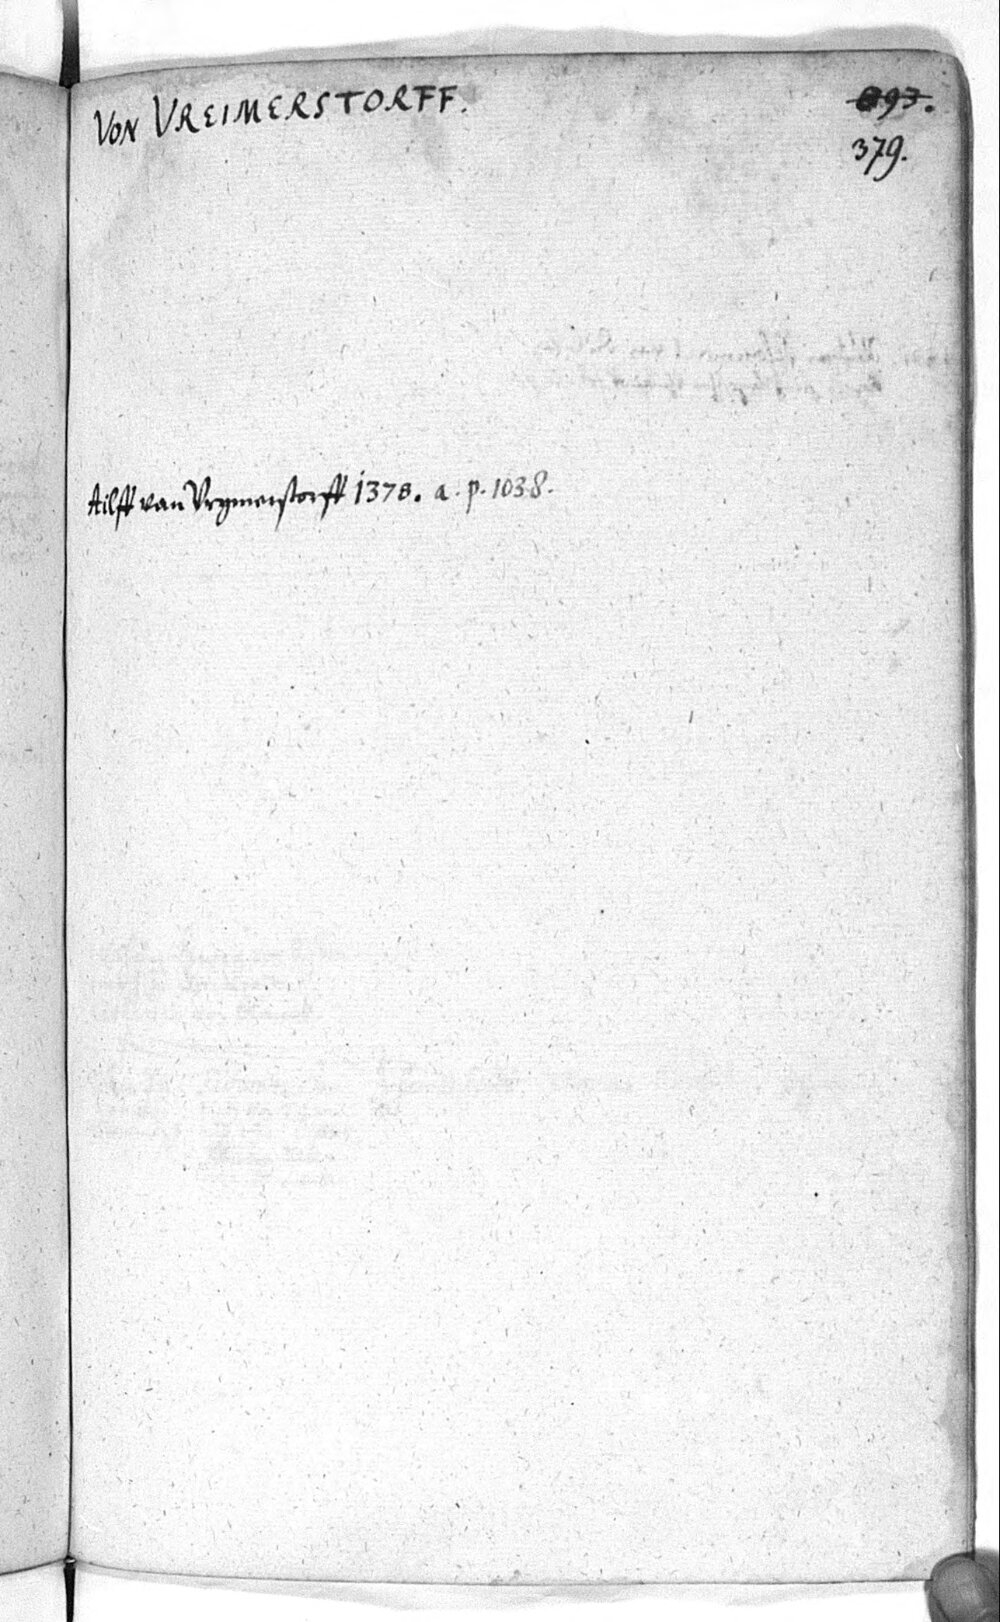 VON VREIMERSTORFF.
379.
Ailff van Vrymerstorff 1378. a. p. 1038.